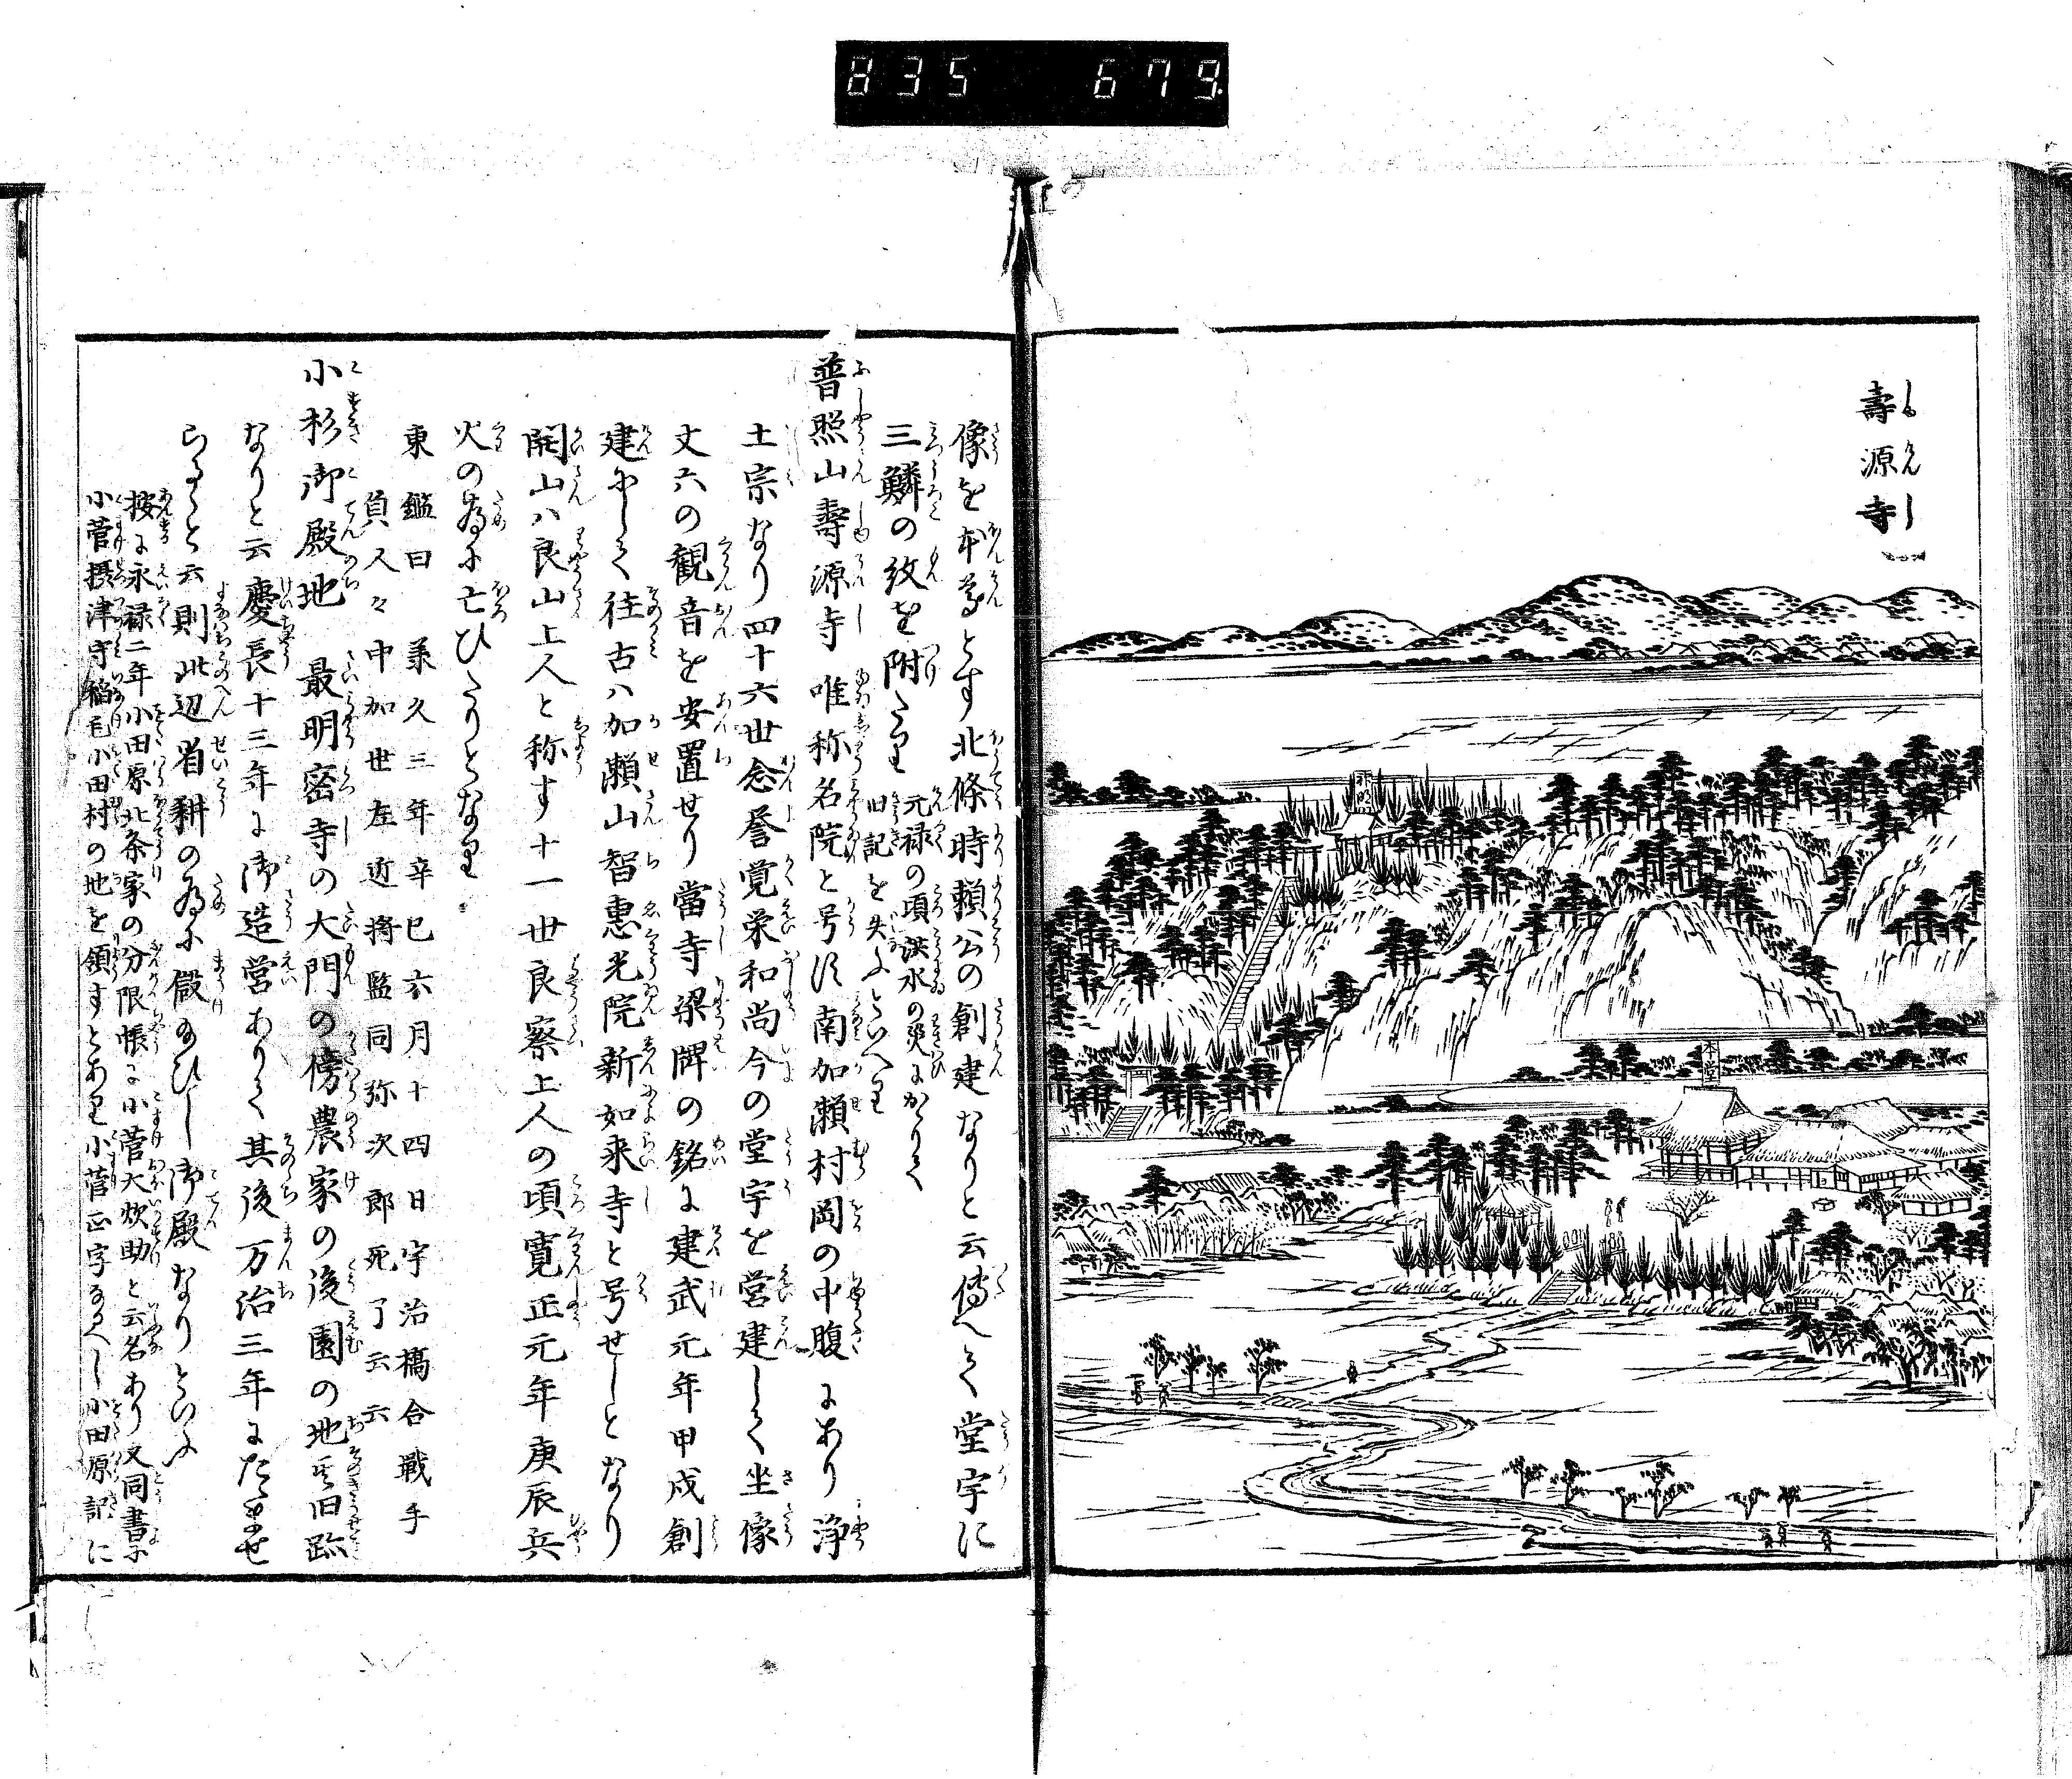 835 679
壽源寺
神明
本堂
像を本尊とす北條時頼公の創建なりと云傳へて堂宇に
三鱗の紋を附たり
元禄の頃洪水の災にかゝりて
旧記を失ふといへり
普照山壽源寺 唯称名院と号す南加瀬村岡の中腹にあり浄
土宗なり四十六世念誉覚栄和尚今の堂宇を営建して坐像
丈六の観音を安置せり當寺梁牌の銘に建武元年甲戌創
建にして往古ハ加瀬山智恵光院新如来寺と号せしとなり
開山ハ良山上人と称す十一世良察上人の頃寛正元年庚辰兵
火の為に亡ひたりとなり
東鑑曰 承久三年辛巳六月十四日宇治橋合戰手
負人々中加世左近將監同弥次郎死了云云
小杉御殿地 最明密寺の大門の傍農家の後園の地其旧跡
なりと云慶長十三年に御造営ありて其後万治三年にたゝせ
らると云則此辺省耕の為に儲給ひし御殿なりといふ
按に永禄二年小田原北条家の分限帳に小菅大炊助と云名あり又同書に
小菅摂津守稲毛小田村の地を領すとあり小菅正字なるへし小田原記に